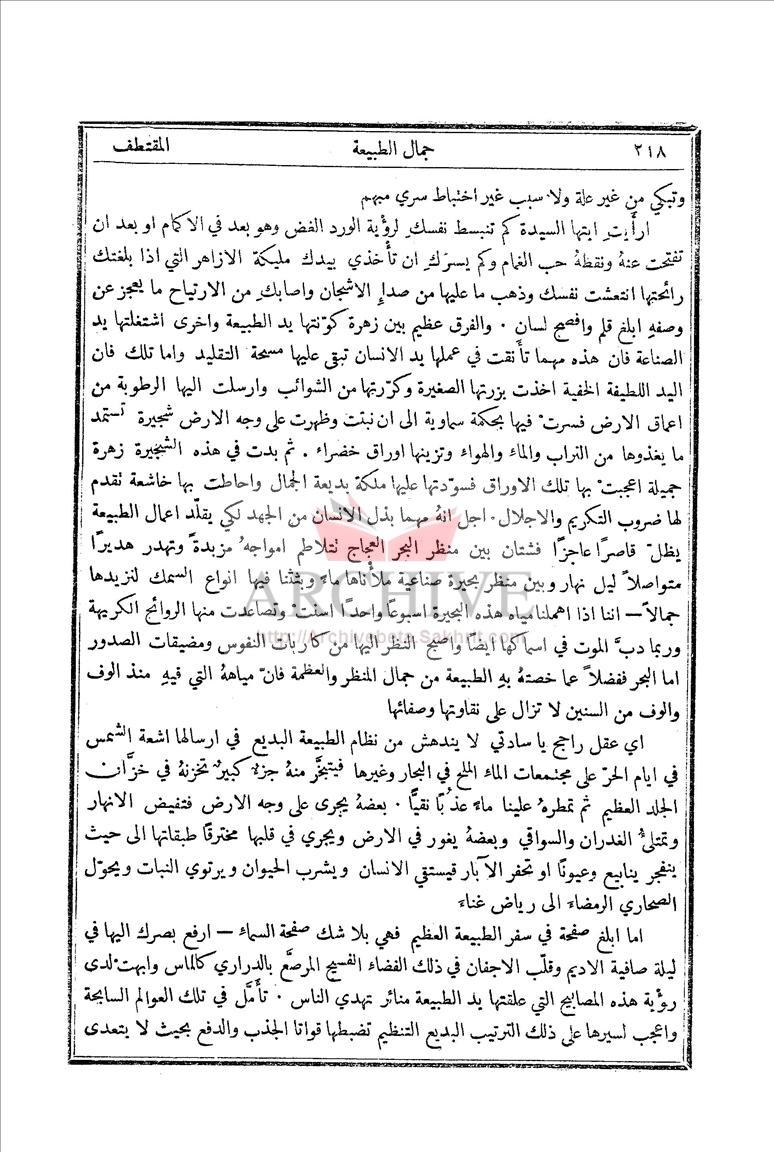 ٢١٨ جمال الطبيعة المقتطف
وتبكي من غير علة ولا سبب غير اختباط سري مبهم
ارأيتِ ايتها السيدة كم تنبسط نفسكِ لرؤية الورد الغض وهو بعد في الاكمام او بعد ان
تفتحت عنهُ ونقطهُ حب الغمام وكم يسرّكِ ان تأخذي بيدك مليكة الازاهر التي اذا بلغتك
رائحتها انتعشت نفسك وذهب ما عليها من صداءِ الاشجان واصابكِ من الارتياح ما يعجز عن
وصفهِ ابلغ قلم وافصح لسان . والفرق عظيم بين زهرة كوّنتها يد الطبيعة واخرى اشتغلتها يد
الصناعة فان هذه مهما تأنقت في عملها يد الانسان تبقى عليها مسحة التقليد واما تلك فان
اليد اللطيفة الخفية اخذت بزرتها الصغيرة وكرّرتها من الشوائب وارسلت اليها الرطوبة من
اعماق الارض فسرتْ فيها بحكمة سماوية الى ان نبتت وظهرت على وجه الارض شجيرة تستمد
ما يغذوها من التراب والماء والهواء وتزينها اوراق خضراء . ثم بدت في هذه الشجيرة زهرة
جميلة اعجبتْ بها تلك الاوراق فسوّدتها عليها ملكة بديعة الجمال واحاطت بها خاشعة تقدم
لها ضروب التكريم والاجلال . اجل انهُ مهما بذل الانسان من الجهد لكي يقلّد اعمال الطبيعة
يظلّ قاصرًا عاجزًا فشتان بين منظر البحر العجاج تتلاطم امواجهُ مزبدةً وتهدر هديرًا
متواصلاً ليل نهار وبين منظر بحيرة صناعية ملأناها ماءً وبثثنا فيها انواع السمك لنزيدها
جمالاً — اننا اذا اهملنا مياه هذه البحيرة اسبوعًا واحدًا اسنتْ وتصاعدت منها الروائح الكريهة
وربما دبَّ الموت في اسماكها ايضًا واصبح النظر اليها من كاربات النفوس ومضيقات الصدور
اما البحر ففضلاً عما خصتهُ بهِ الطبيعة من جمال المنظر والعظمة فانّ مياههُ التي فيهِ منذ الوف
والوف من السنين لا تزال على نقاوتها وصفائها
اي عقل راجح يا سادتي لا يندهش من نظام الطبيعة البديع في ارسالها اشعة الشمس
في ايام الحرّ على مجتمعات الماء الملح في البحار وغيرها فيتبخَّر منهُ جزءٌ كبيرٌ تخزنهُ في خزَّان
الجلد العظيم ثم تمطرهُ علينا ماءً عذبًا نقيًّا . بعضهُ يجرى على وجه الارض فتفيض الانهار
وتمتلئُ الغدران والسواقي وبعضهُ يغور في الارض ويجري في قلبها مخترقًا طبقاتها الى حيث
ينفجر ينابيع وعيونًا او تحفر الآبار فيستقي الانسان ويشرب الحيوان ويرتوي النبات ويحوّل
الصحاري الرمضاء الى رياض غناء
اما ابلغ صفحة في سفر الطبيعة العظيم فهي بلا شك صفحة السماء — ارفع بصرك اليها في
ليلة صافية الاديم وقلّب الاجفان في ذلك الفضاء الفسيح المرصَّع بالدراري كالماس وابهتْ لدى
رؤية هذه المصابيح التي علقتها يد الطبيعة منائر تهدي الناس . تأمَّل في تلك العوالم السابحة
واعجب لسيرها على ذلك الترتيب البديع التنظيم تضبطها قواتا الجذب والدفع بحيث لا يتعدى
ARCHIVE
http://Archivebeta.Sakhrit.com